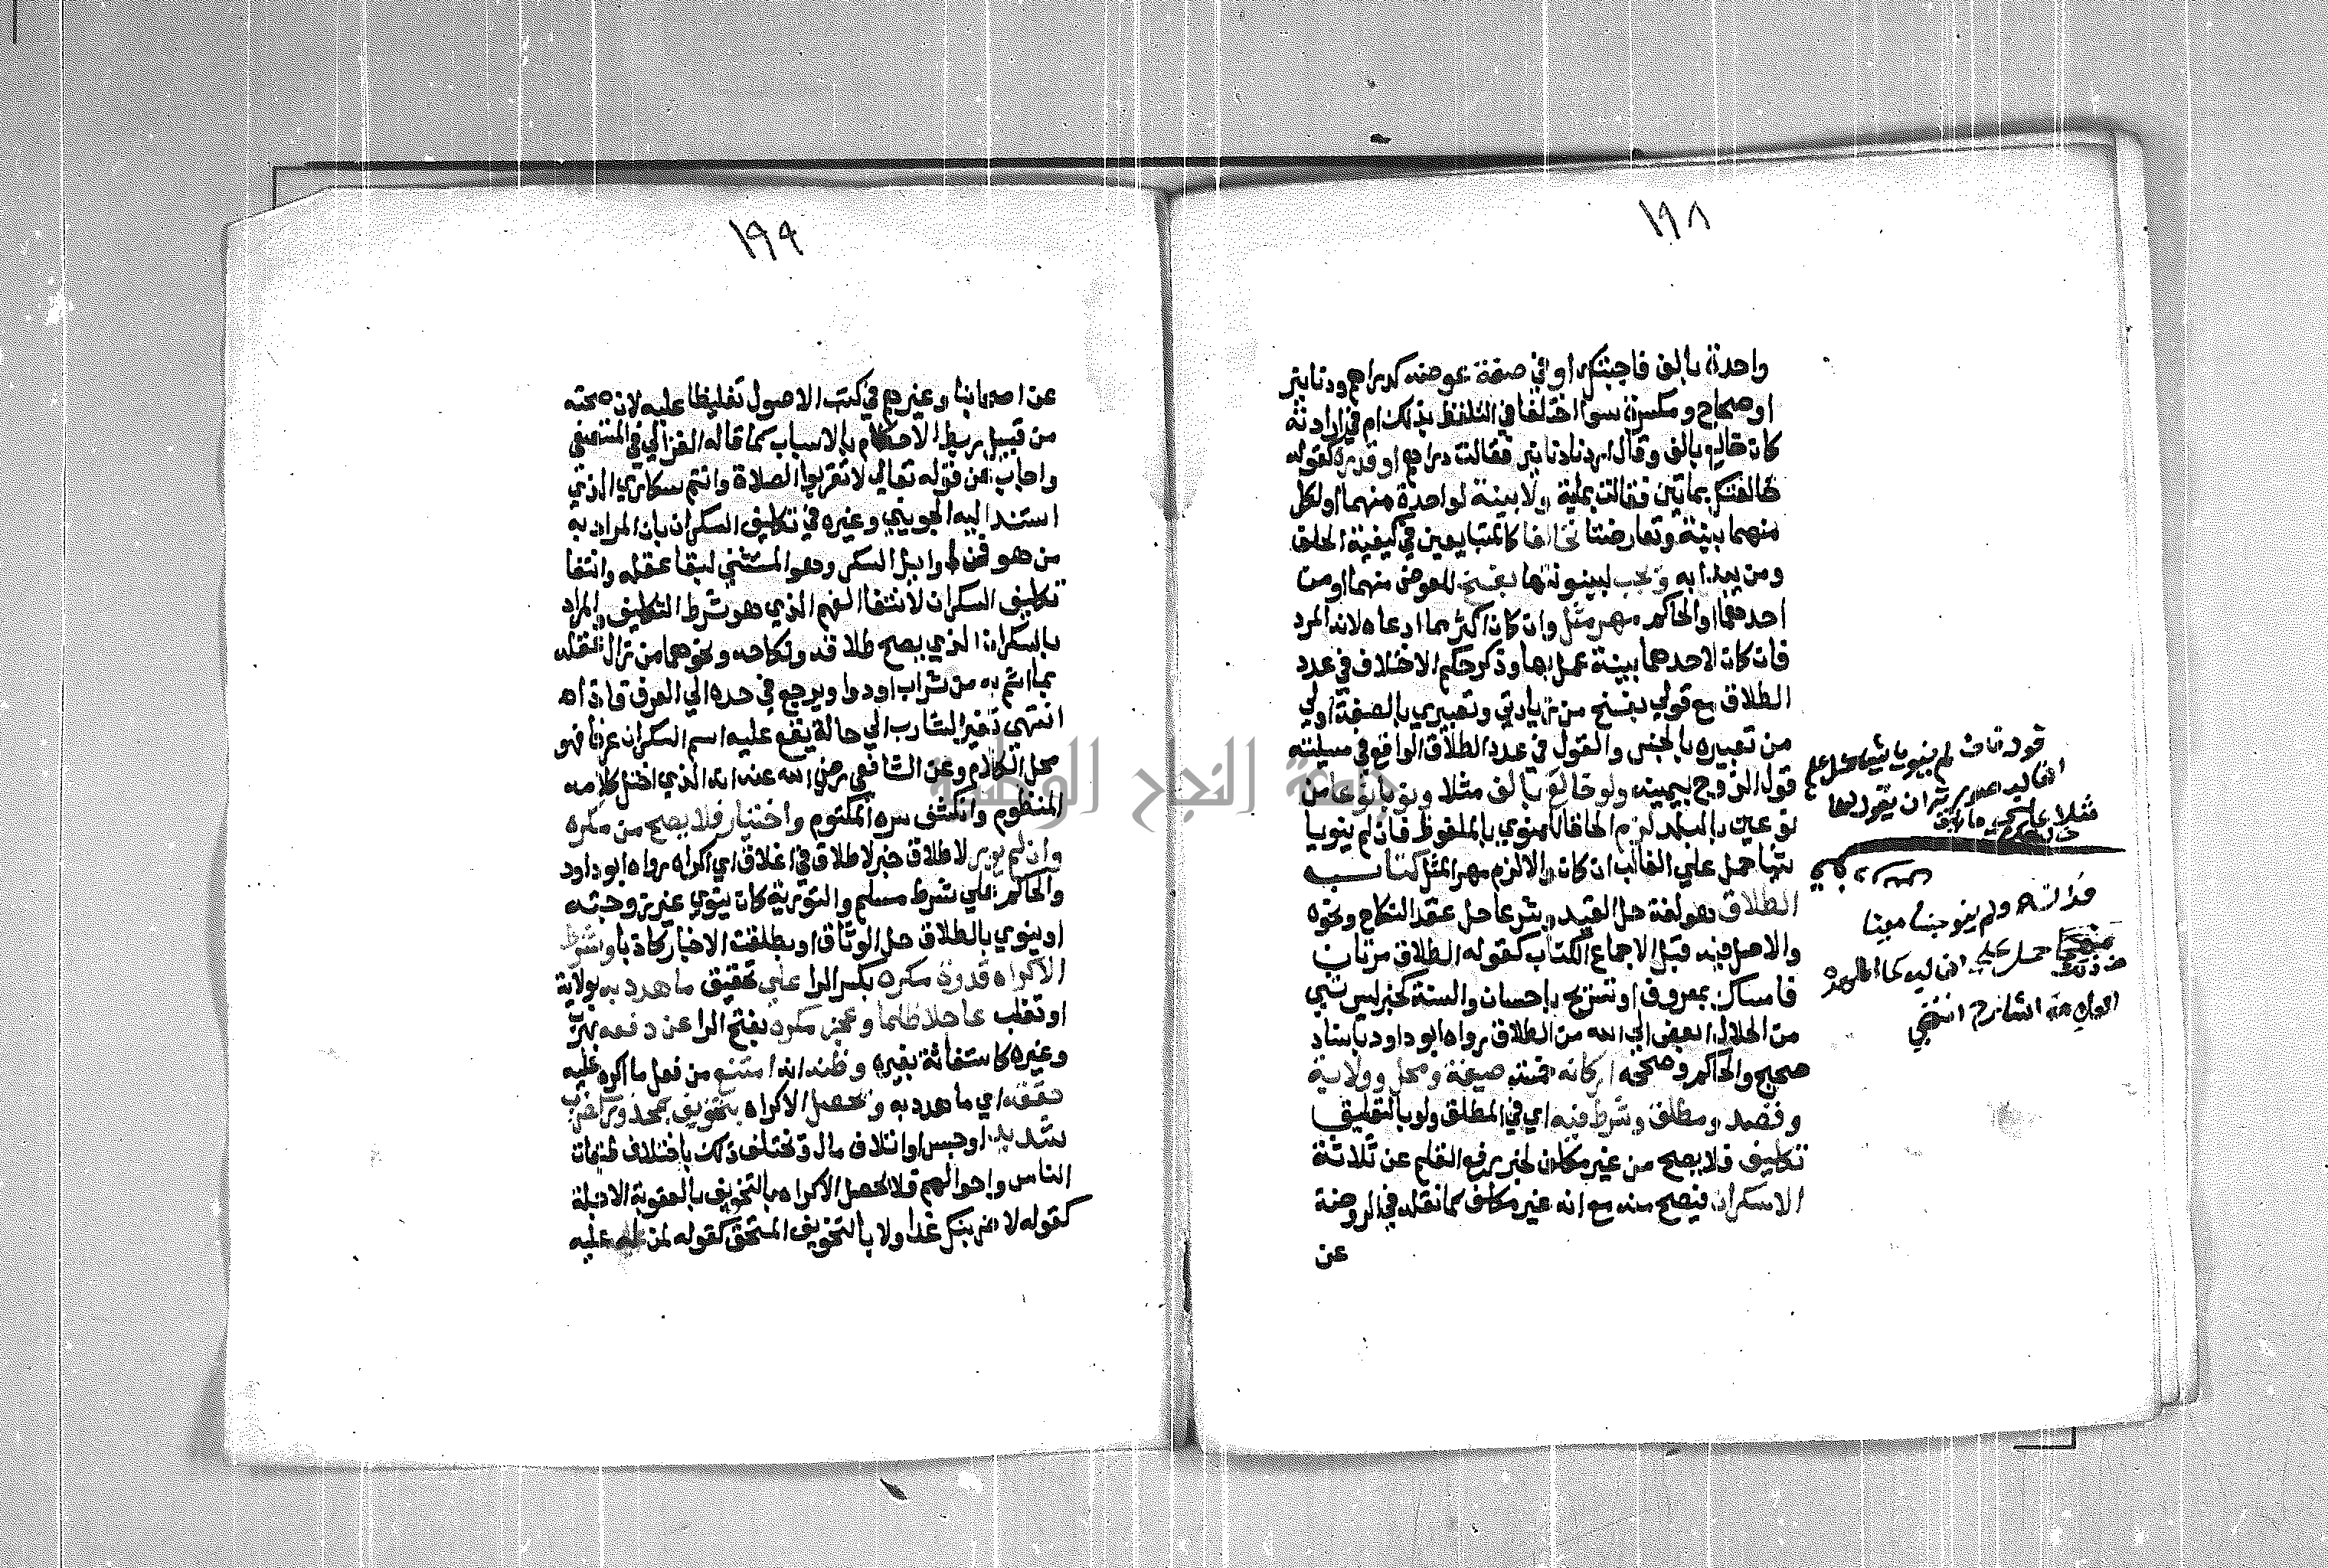 ١٩٨
واحدة بالف فاجبتك او في صفة عوضه كدراهم ودنانير
او صحاح ومكسرة سوا اختلفا في التلفظ بذلك ام في ارادته
كان خالع بالف وقال اردنا دنانير فقالت دراهم او قدره كقوله
خالعتك بمايتين فقالت بماية ولا بينة لواحدة منهما او لكل
منهما بينة وتعارضتا تحالفا كالمتبايعين في كيفية الحلف
ومن يبدا به ويجب لبينونتها بفسخ للعوض منهما او من
احدهما او الحاكم مهر مثل وان كان اكثر مما ادعاه لانه المرد
فان كان لاحدهما بينة عمل بها وذكر حكم الاختلاف في عدد
الطلاق مع قولي بفسخ من زيادتي وتعبيري بالصفة اولى
من تعبيره بالجنس والقول في عدد الطلاق الواقع في مسيلته
قول الزوج بيمينه ولو خالع بالف مثلا ونويا نوعا من
نوعين بالبلد لزم الحاقا للمنوي بالملفوظ فان لم ينويا
شيا حمل على الغالب ان كان والا لزم مهر المثل كتاب
الطلاق هو لغة حل القيد وشرعا حل عقد النكاح ونحوه
والاصل فيه قبل الاجماع الكتاب كقوله الطلاق مرتان
فامساك بمعروف او تسريح باحسان والسنة كخبر ليس شي
من الحلال ابغض الى الله من الطلاق رواه ابو داود باسناد
صحيح والحاكم وصححه اركانه خمسة صيغة ومحل وولاية
وقصد ومطلق وشرط فيه اي في المطلق ولو بالتعليق
تكليف فلا يصح من غير مكلف لخبر رفع القلم عن ثلاثة
الا سكران فيصح منه مع انه غير مكلف كما نقله في الروضة
عن
قوله فان لم ينويا شيا حمل على
الغالب
ان يقول لها
قوله ولم ينو
حمل على الغالب كما
الشارح انتهى
١٩٩
عن اصحابنا وغيرهم في كتب الاصول تغليظا عليه لان صحته
من قبيل ربط الاحكام بالاسباب كما قاله الغزالي في المستصفى
واجاب عن قوله تعالى لا تقربوا الصلاة وانتم سكارى الذي
استند اليه الجويني وغيره في تكليف السكران بان المراد به
من هو في اوايل السكر وهو المنتشي لبقا عقله وانتفا
تكليف السكران لانتفا الفهم الذي هو شرط التكليف والمراد
بالسكران الذي يصح طلاقه ونكاحه ونحوهما من زال عقله
بما اثم به من شراب او دوا ويرجع في حده الى العرف فاذا
انتهى تغير الشارب الى حالة يقع عليه اسم السكران عرفا فهو
محل الكلام وعن الشافعي رضي الله عنه انه الذي اختل كلامه
المنظوم وانكشف سره المكتوم واختيار فلا يصح من مكره
وان لم يور لاطلاق خبر لا طلاق في اغلاق اي اكراه رواه ابو داود
والحاكم على شرط مسلم والتورية كان ينوي غير زوجته
او ينوي بالطلاق حل الوثاق او بطلقت الاخبار كاذبا وشرط
الاكراه قدرة مكره بكسر الرا على تحقيق ما هدد به بولاية
او تغلب عاجلا ظلما وعجز مكره بفتح الرا عن دفعه بهرب
وغيره كاستغاثة بغيره وظنه انه ان امتنع من فعل ما اكره عليه
حققه اي ما هدد به ويحصل الاكراه بتخويف بمحذور كضرب
شديد او حبس او اتلاف مال وتختلف ذلك باختلاف طبقات
الناس واحوالهم فلا يحصل الاكراه بالتخويف بالعقوبة الاجلة
كقوله لاضربنك غدا ولا بالتخويف المستحق كقوله لمن له عليه